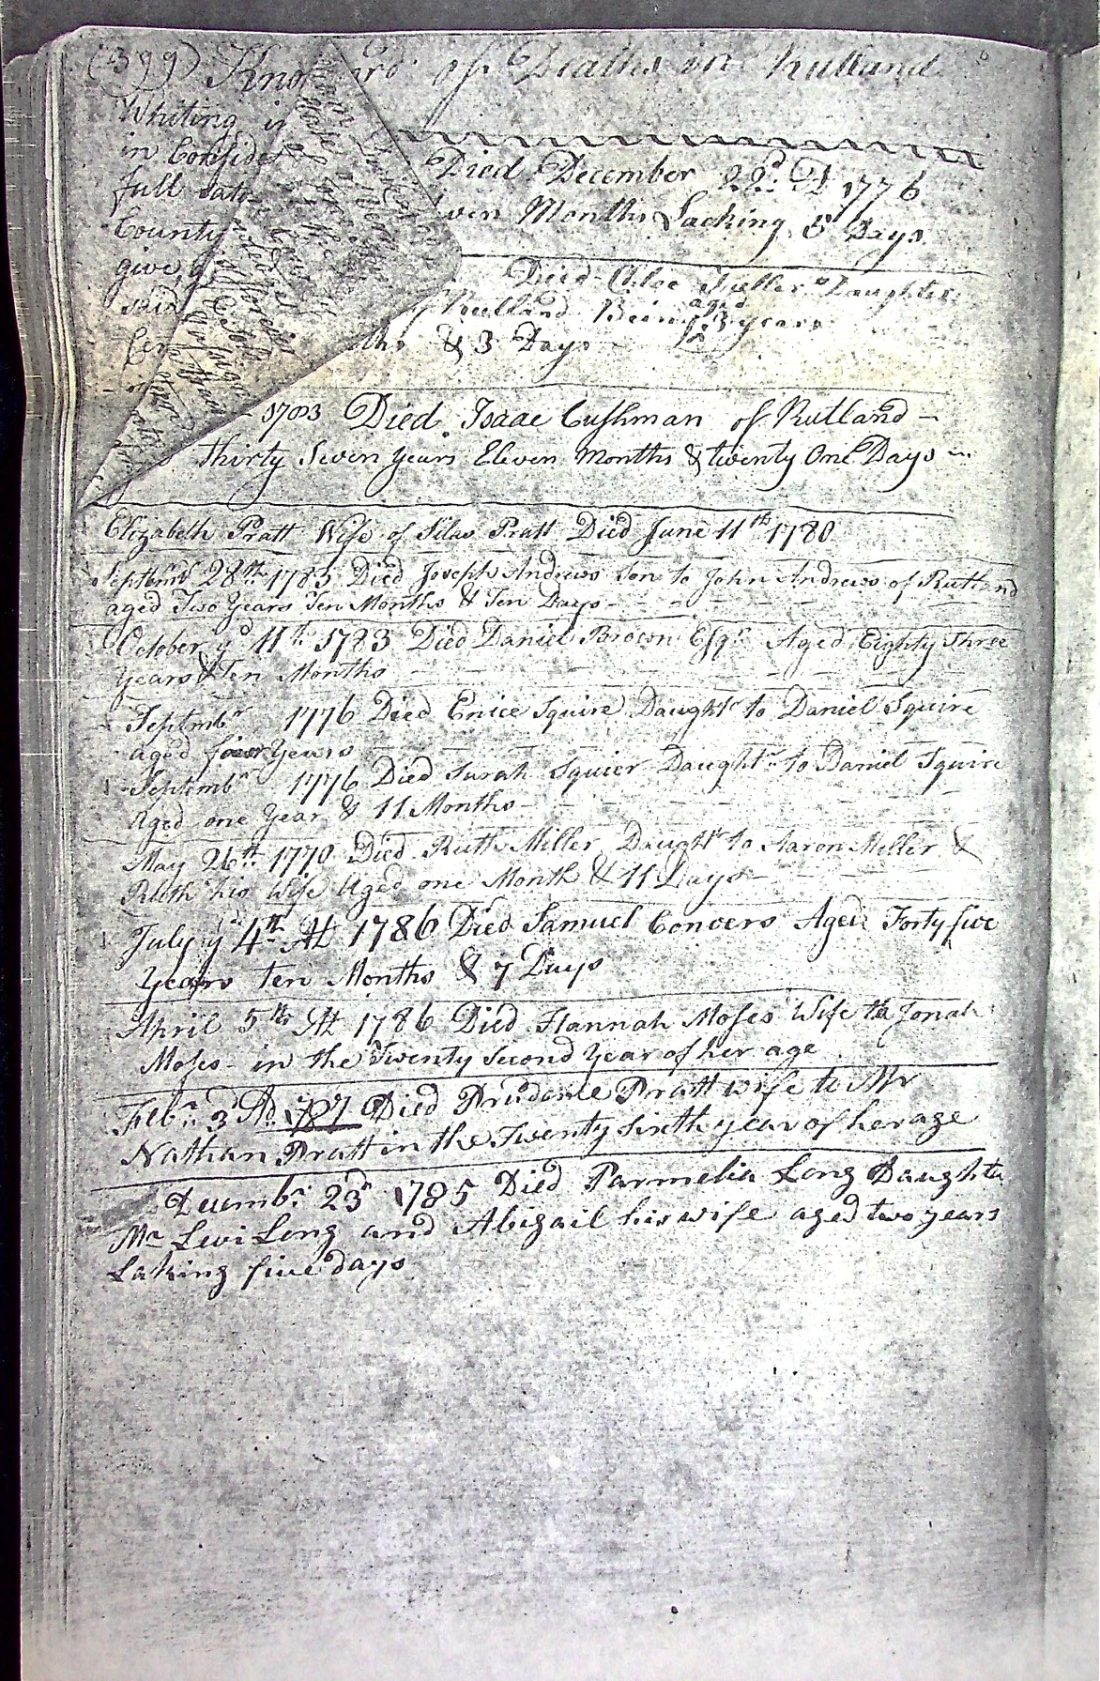 (399) Kno
of Deaths in Rutland
Whiting in
in Consider
full sat
County
give, g
said
Died December 22d A 1776
ven Months Lacking 8 Days
Died Chloe Fuller Daughter
Rutland Being aged 3 years
ths & 3 Days
1783 Died Isaac Cushman of Rutland
Thirty Seven years Eleven Months & twenty One Days
Elizabeth Pratt Wife of Silas Pratt Died June 11th 1780
Septembr 28th 1785 Died Joseph Andrews Son to John Andrews of Rutland
aged Two Years Ten Months & Ten Days
October ye 11th 1783 Died Daniel Brown Esqr Aged Eighty Three
years & Ten Months
Septmbr 1776 Died Enice Squire Daughtr to Daniel Squire
aged four years
Septembr 1776 Died Sarah Squier Daughtr to Daniel Squire
Aged one Year & 11 Months
May 26th 1770 Died Ruth Miller Daughtr to Aaron Miller &
Ruth his Wife Aged one Month & 11 Days
July ye 4th AD 1786 Died Samuel Convers Aged Forty five
Years ten Months & 7 Days
April 5th AD 1786 Died Hannah Moses Wife to Jonah
Moses in the Twenty Second Year of her age
Febr 3d AD 1787 Died Prudence Pratt wife to Mr
Nathan Pratt in the Twenty Sixth year of her age
Decembr 23d 1785 Died Parmelia Long Daughter
Mr Levi Long and Abigail his wife aged two years
Laking five days